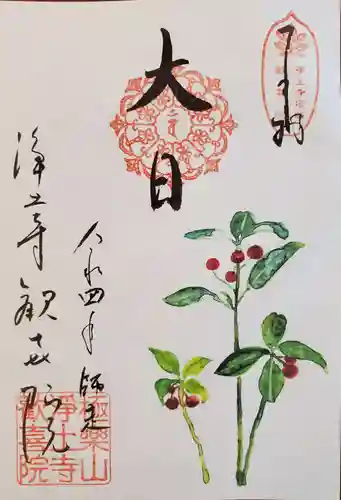 大日
令和四年 師走
浄土寺歓喜院
極楽山
浄土寺
歓喜院